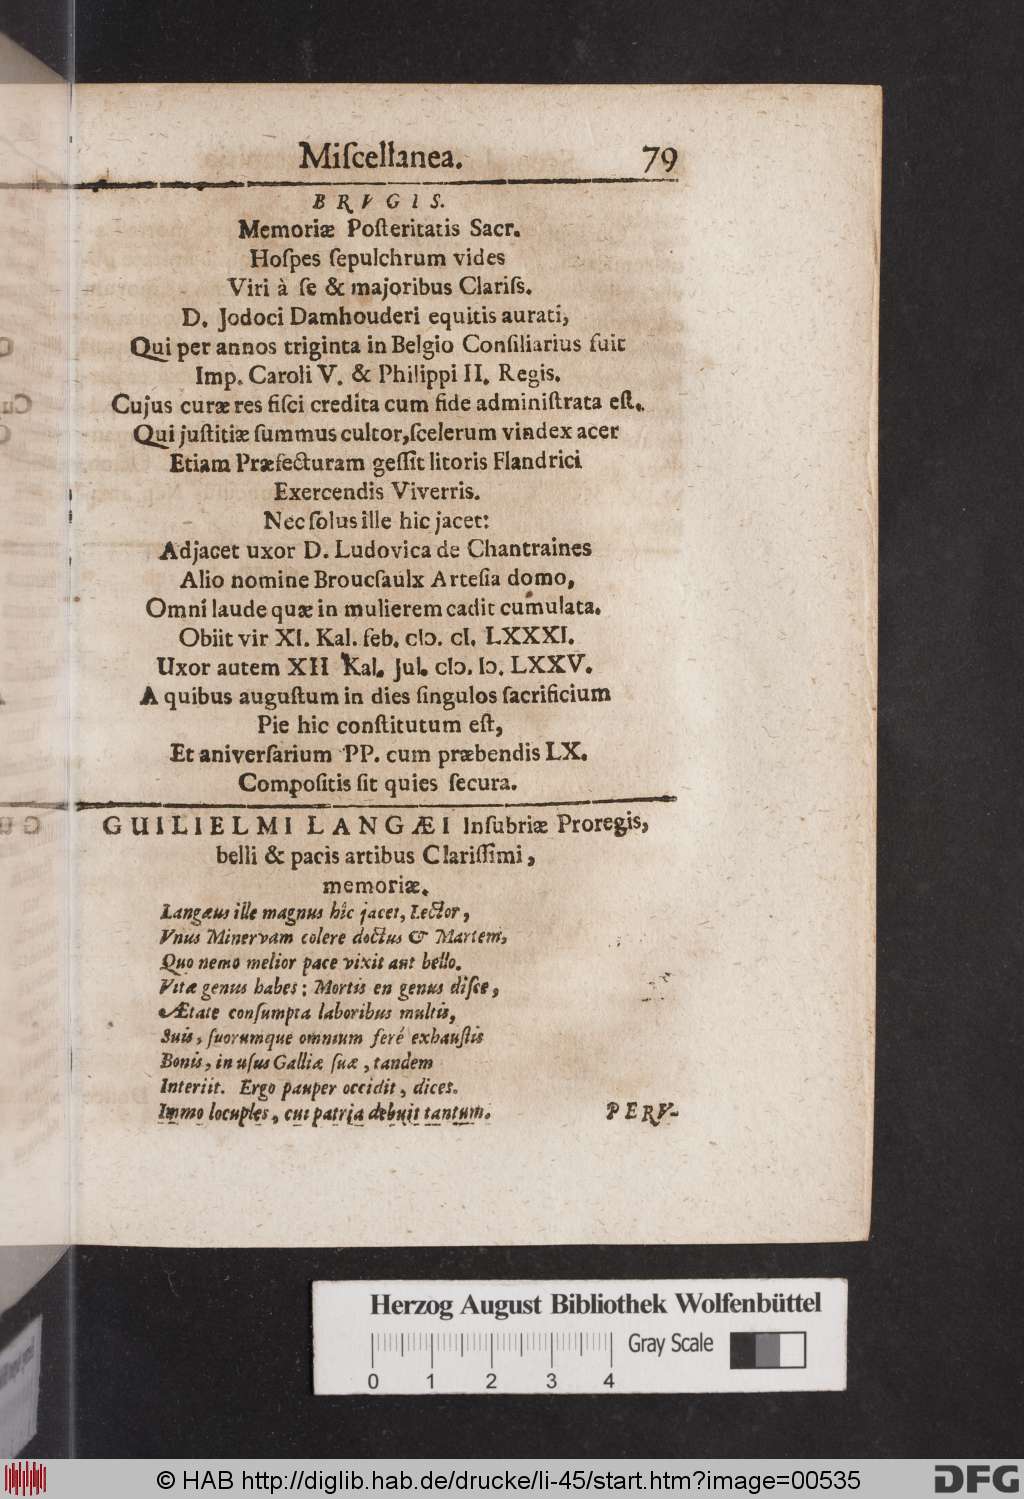 Miſcellanea. 79
BRVGIS.
Memoriæ Poſteritatis Sacr.
Hoſpes ſepulchrum vides
Viri à ſe & majoribus Clariſs.
D. Jodoci Damhouderi equitis aurati,
Qui per annos triginta in Belgio Conſiliarius fuit
Imp. Caroli V. & Philippi II. Regis.
Cujus curæ res fiſci credita cum fide adminiſtrata eſt.
Qui juſtitiæ ſummus cultor, ſcelerum vindex acer
Etiam Præfecturam geſſit litoris Flandrici
Exercendis Viverris.
Nec ſolus ille hic jacet:
Adjacet uxor D. Ludovica de Chantraines
Alio nomine Broucſaulx Arteſia domo,
Omni laude quæ in mulierem cadit cumulata.
Obiit vir XI. Kal. feb. cIɔ. cI. LXXXI.
Uxor autem XII Kal. Jul. cIɔ. Iɔ. LXXV.
A quibus auguſtum in dies ſingulos ſacrificium
Pie hic conſtitutum eſt,
Et aniverſarium PP. cum præbendis LX.
Compoſitis ſit quies ſecura.
GUILIELMI LANGÆI Inſubriæ Proregis,
belli & pacis artibus Clariſſimi,
memoriæ.
Langæus ille magnus hîc jacet, Lector,
Vnus Minervam colere doctus & Martem,
Quo nemo melior pace vixit aut bello.
Vitæ genus habes: Mortis en genus diſce,
Ætate conſumpta laboribus multis,
Suis, ſuorumque omnium feré exhauſtis
Bonis, in uſus Galliæ ſuæ, tandem
Interiit. Ergo pauper occidit, dices.
Immo locuples, cui patria debuit tantum.
PERV-
Herzog August Bibliothek Wolfenbüttel
Gray Scale
0 1 2 3 4
© HAB http://diglib.hab.de/drucke/li-45/start.htm?image=00535
DFG